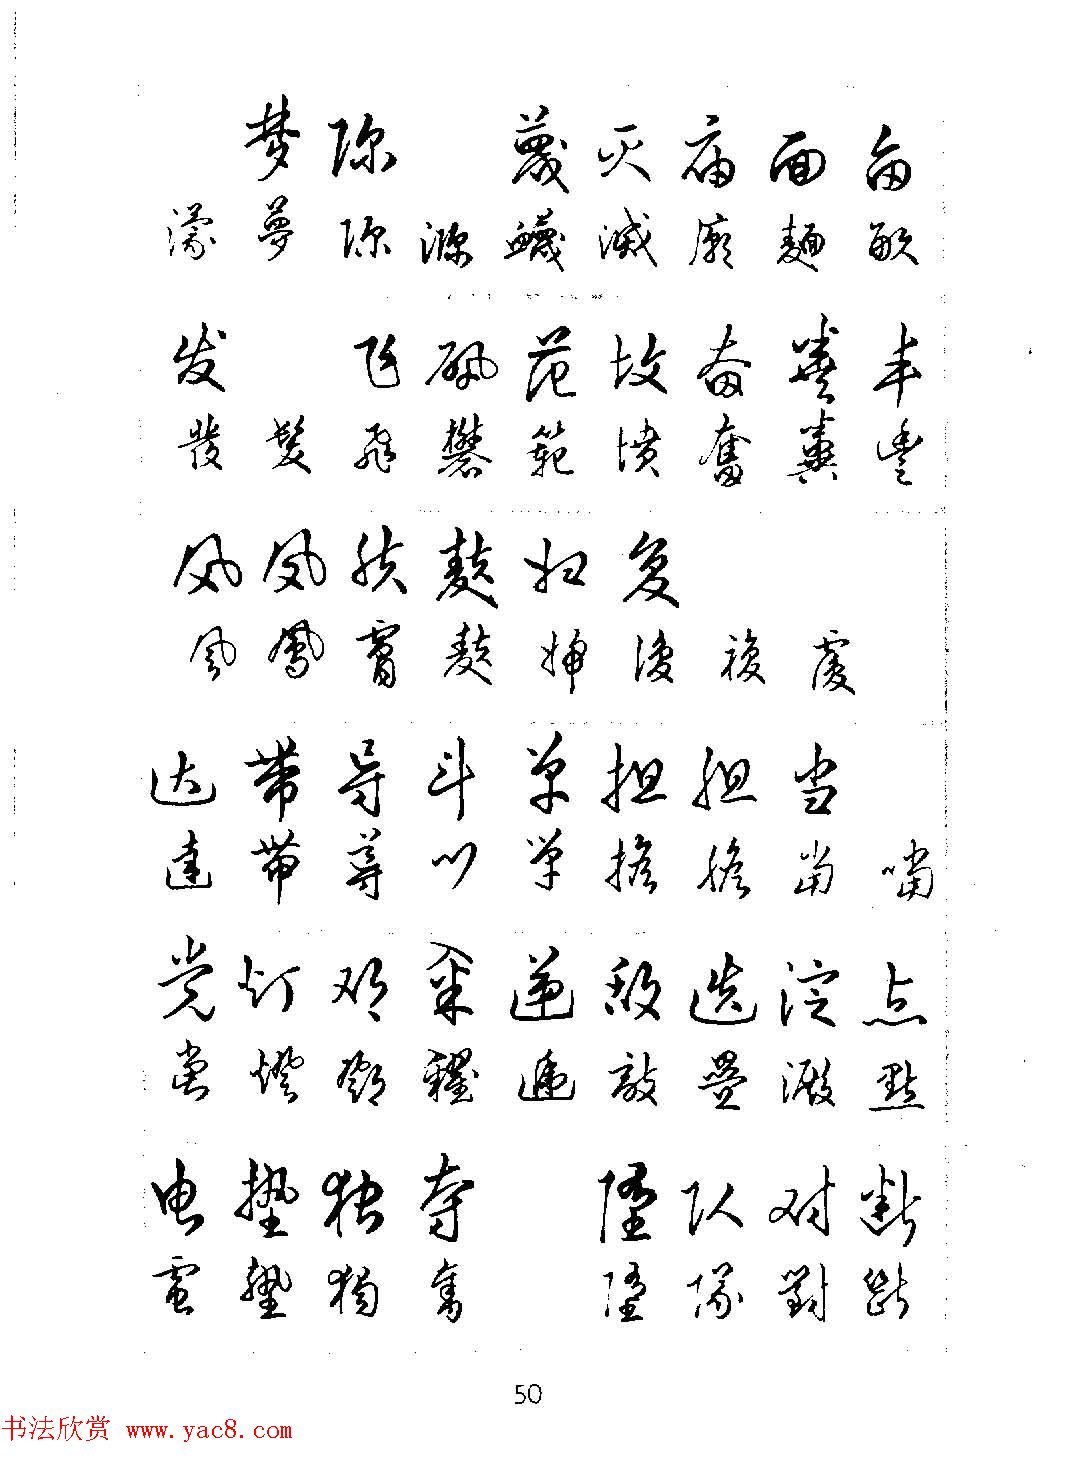 梦 弥 蔑 灭 庙 面 亩
濛 夢 瀰 衊 滅 廟 麵 畝
发 飞 矾 范 坟 奋 粪 丰
發 髮 飛 礬 範 墳 奮 糞 豐
风 凤 肤 麸 妇 复
風 鳳 膚 麩 婦 復 複 覆
达 带 导 斗 单 担 胆 当
達 帶 導 單 擔 膽 當 噹
党 灯 邓 籴 递 敌 迭 淀 点
黨 燈 鄧 糴 遞 敵 疊 澱 點
电 垫 独 夺 堕 队 对 断
電 墊 獨 奪 墮 隊 對 斷
50
书法欣赏 www.yac8.com